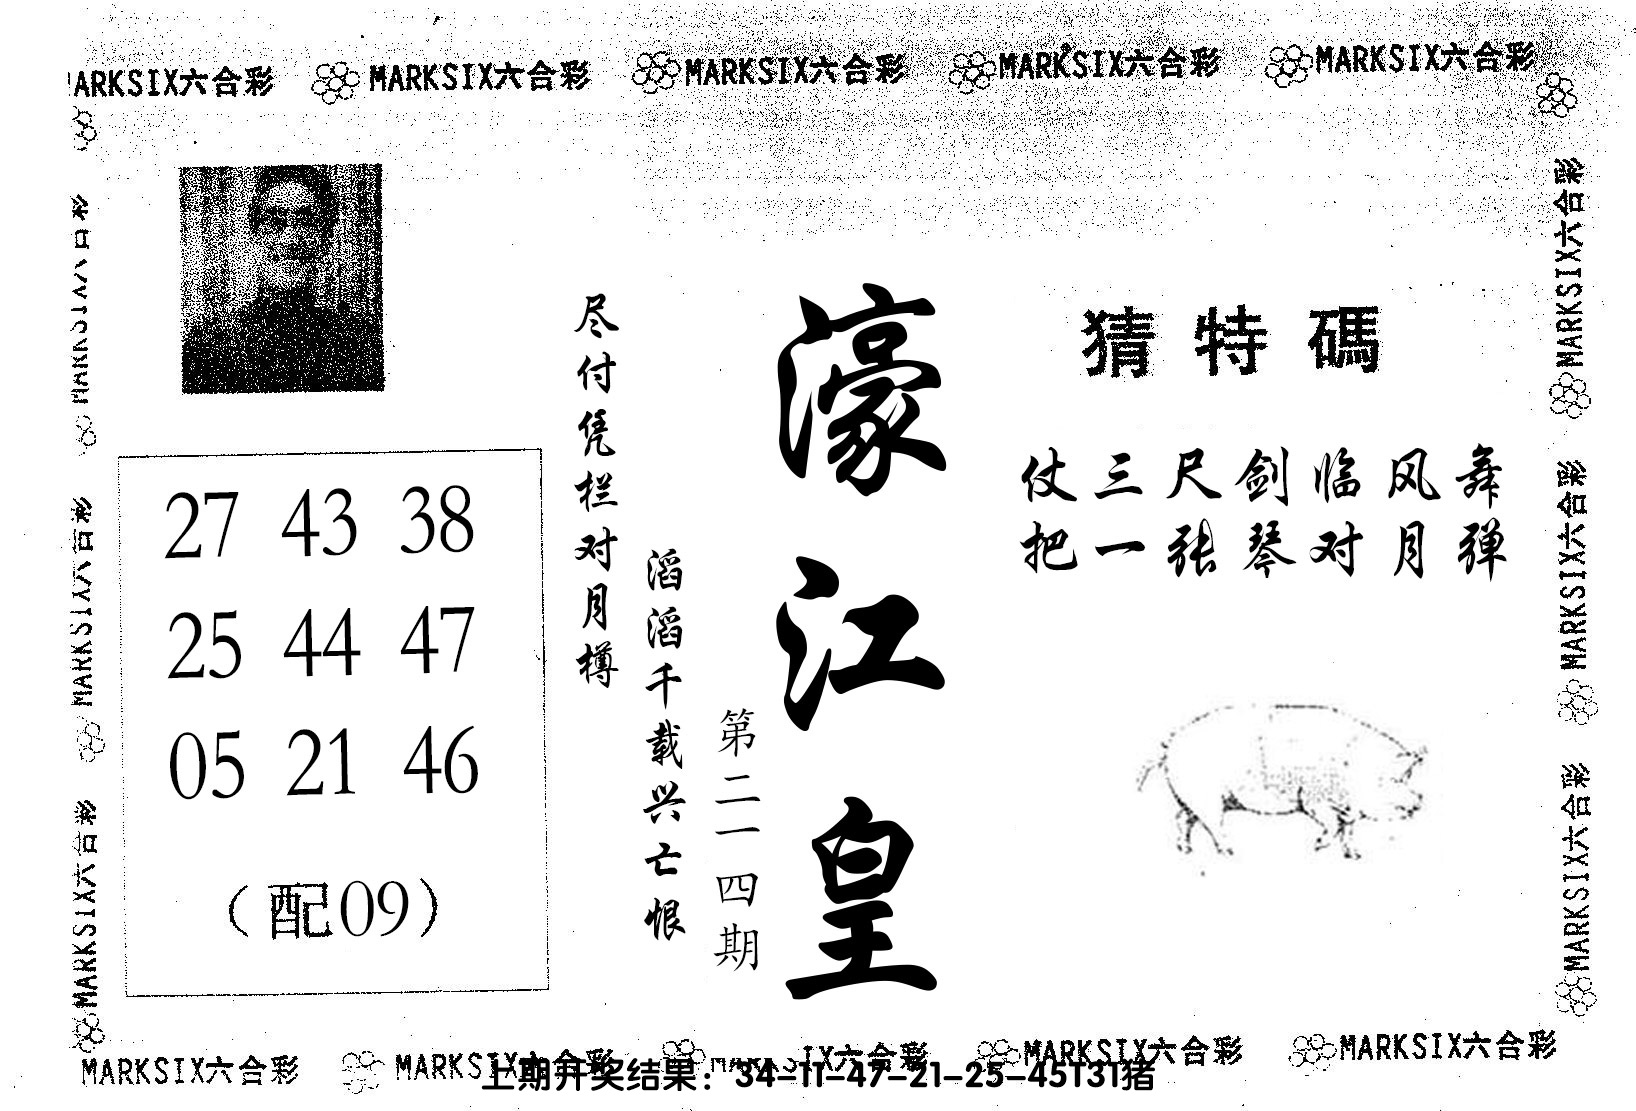 MARKSIX六合彩 MARKSIX六合彩 MARKSIX六合彩 MARKSIX六合彩 MARKSIX六合彩
猜特碼
仗三尺剑临风舞
把一张琴对月弹
濠江皇
第二一四期
滔滔千载兴亡恨
尽付凭栏对月樽
27 43 38
25 44 47
05 21 46
（配09）
MARKSIX六合彩
MARKSIX六合彩
MARKSIX六合彩
MARKSIX六合彩
MARKSIX六合彩
MARKSIX六合彩
MARKSIX六合彩 MARKSIX六合彩 MARKSIX六合彩 MARKSIX六合彩 MARKSIX六合彩
上期开奖结果：34-11-47-21-25-45T31猪